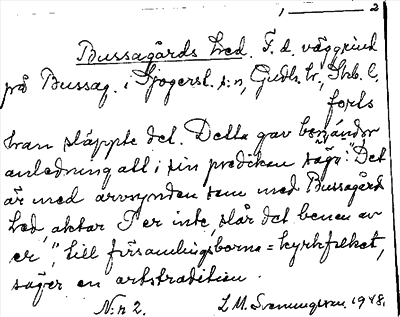 1 — 2
Bussagårds Led. F. d. väggrind
på Bussag. i Sjogerst. s:n, Gudh. hr, Skb. l.
forts
han släppte det. Detta gav
anledning att i sin predikan säga: "Det
är med arvsynden som med Bussagård
Led, aktar I er inte, slår det benen av
er", till församlingsborna = kyrkfolket,
säger en ortstradition.
N:r 2. L. M. Svenungsson. 1948.